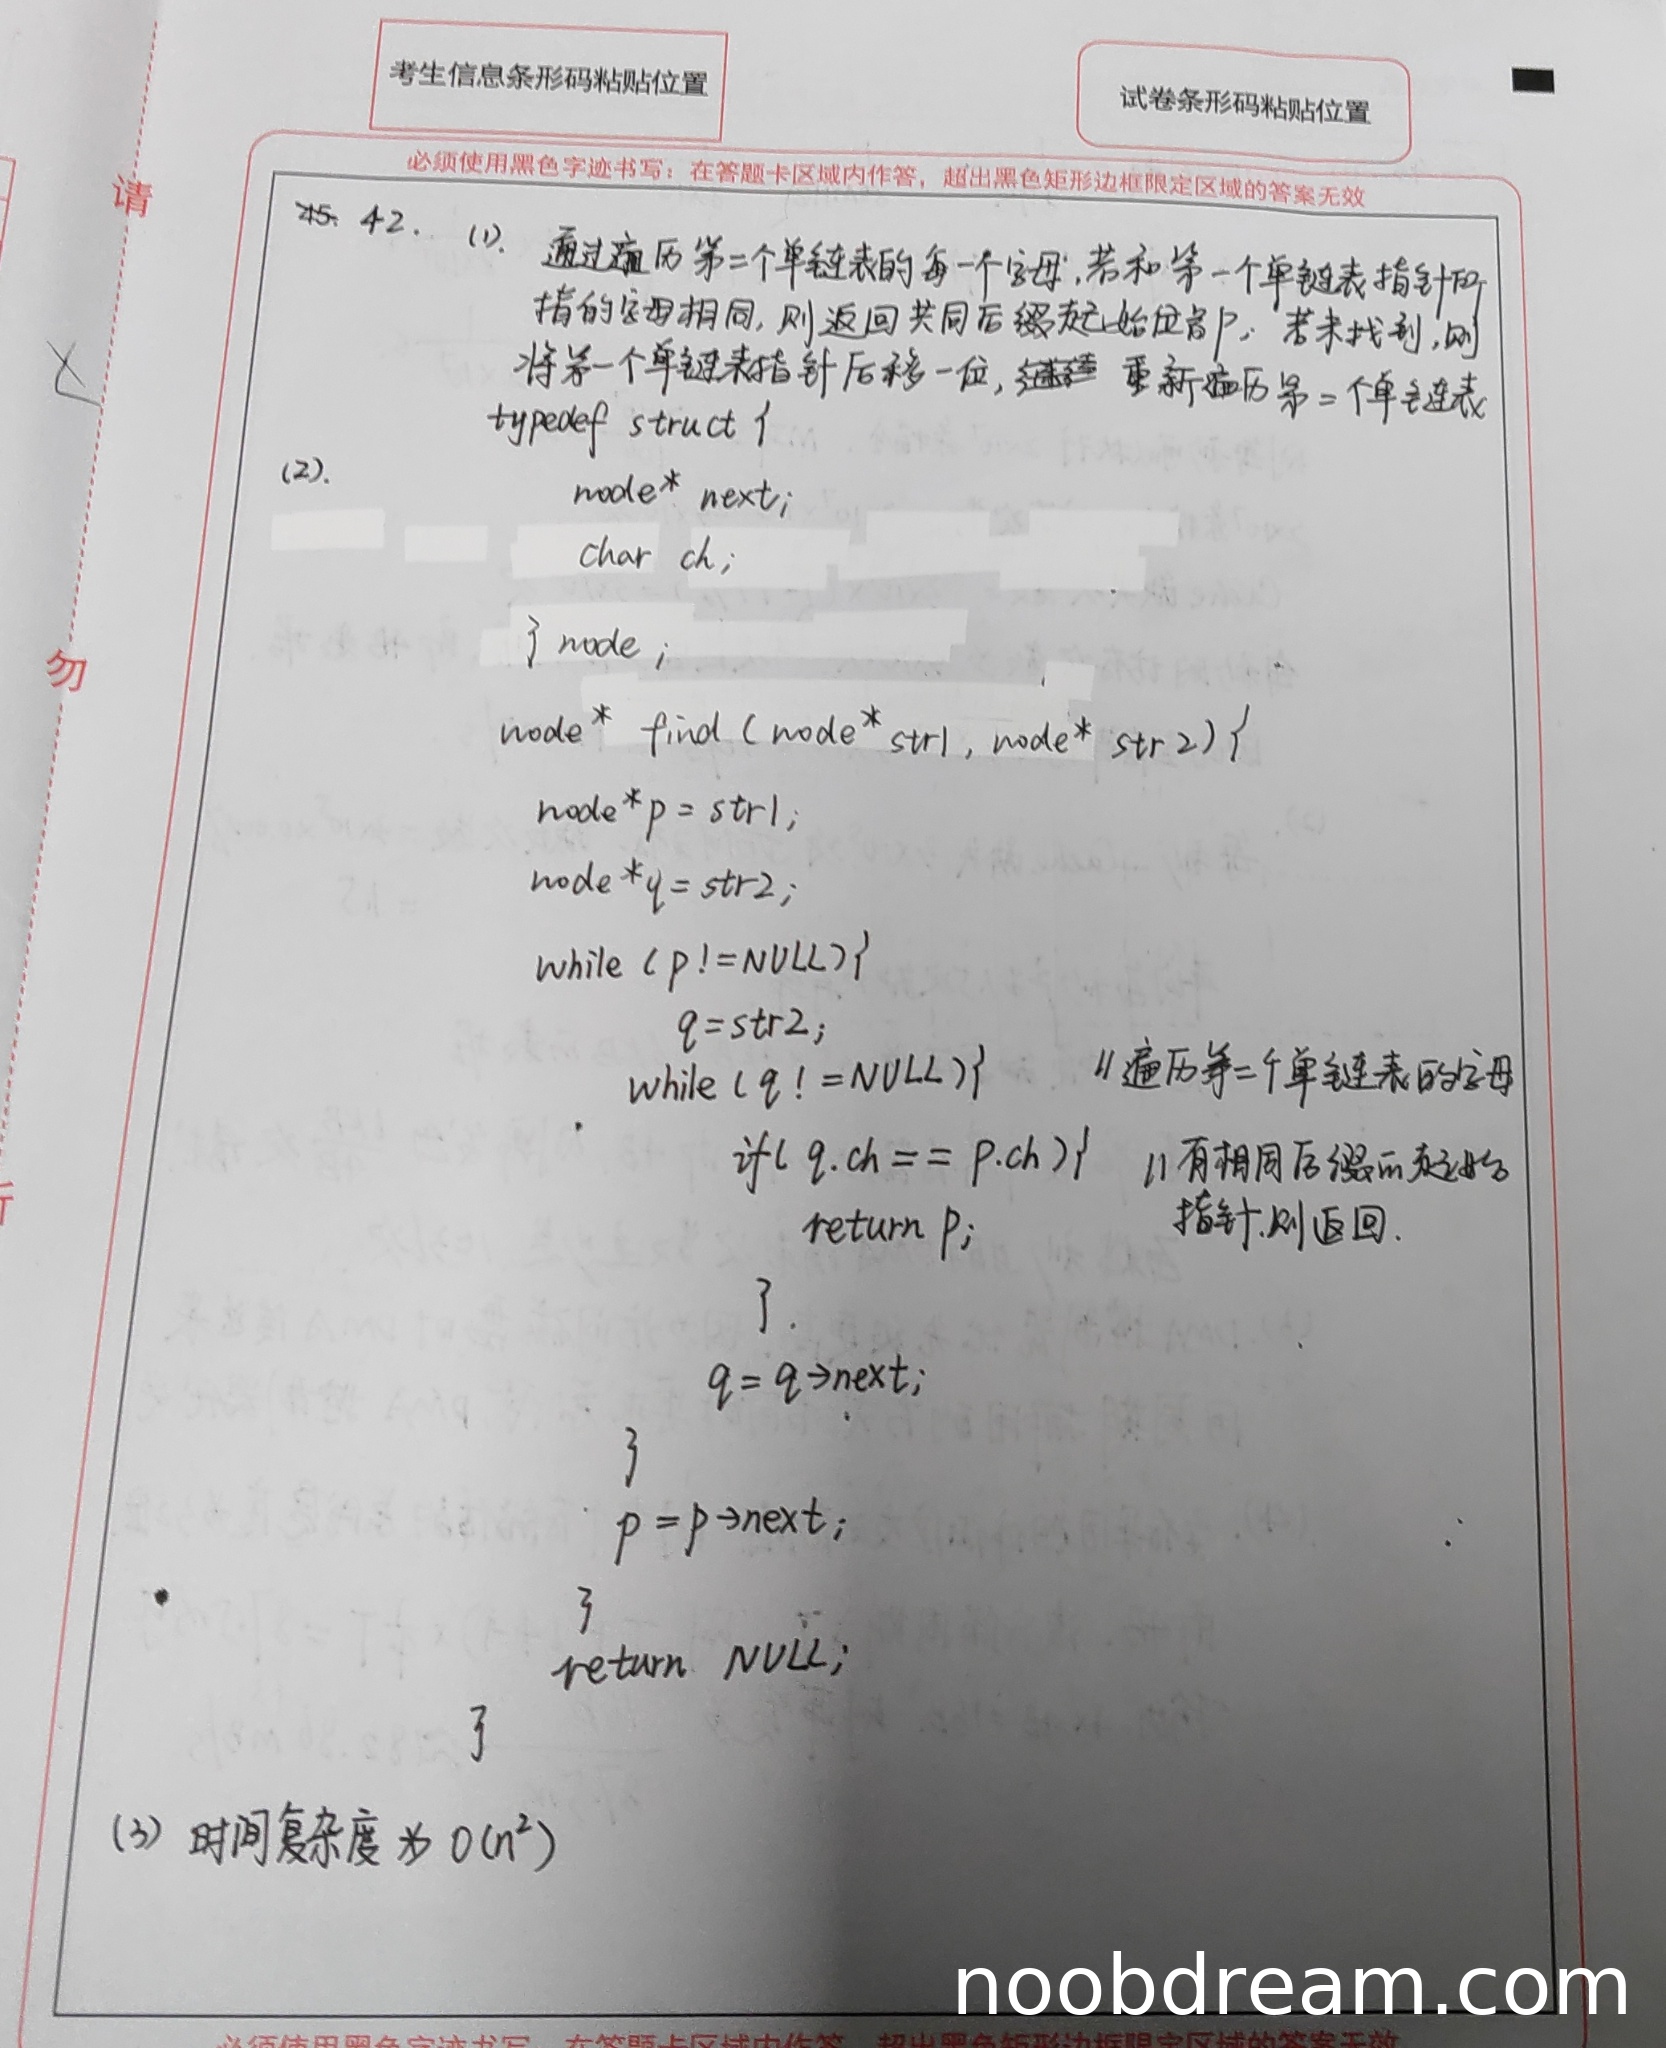 考生信息条形码粘贴位置
试卷条形码粘贴位置
必须使用黑色字迹书写：在答题卡区域内作答，超出黑色矩形边框限定区域的答案无效
请
勿
45. 42. (1). 通过遍历第二个单链表的每一个字母，若和第一个单链表指针所
指的字母相同，则返回共同后缀起始位置p。若未找到，则
将第一个单链表指针后移一位，继续 重新遍历第二个单链表
typedef struct {
(2).
node* next;
char ch;
} node;
node* find (node* str1, node* str2) {
node* p = str1;
node* q = str2;
while (p != NULL) {
q = str2;
while (q != NULL) { // 遍历第二个单链表的字母
if( q.ch == p.ch) { // 有相同后缀的起始
return p; 指针，则返回.
}.
q = q->next;
}
p = p->next;
}
return NULL;
}
(3) 时间复杂度为 O(n²)
noobdream.com
必须使用黑色字迹书写：在答题卡区域内作答，超出黑色矩形边框限定区域的答案无效